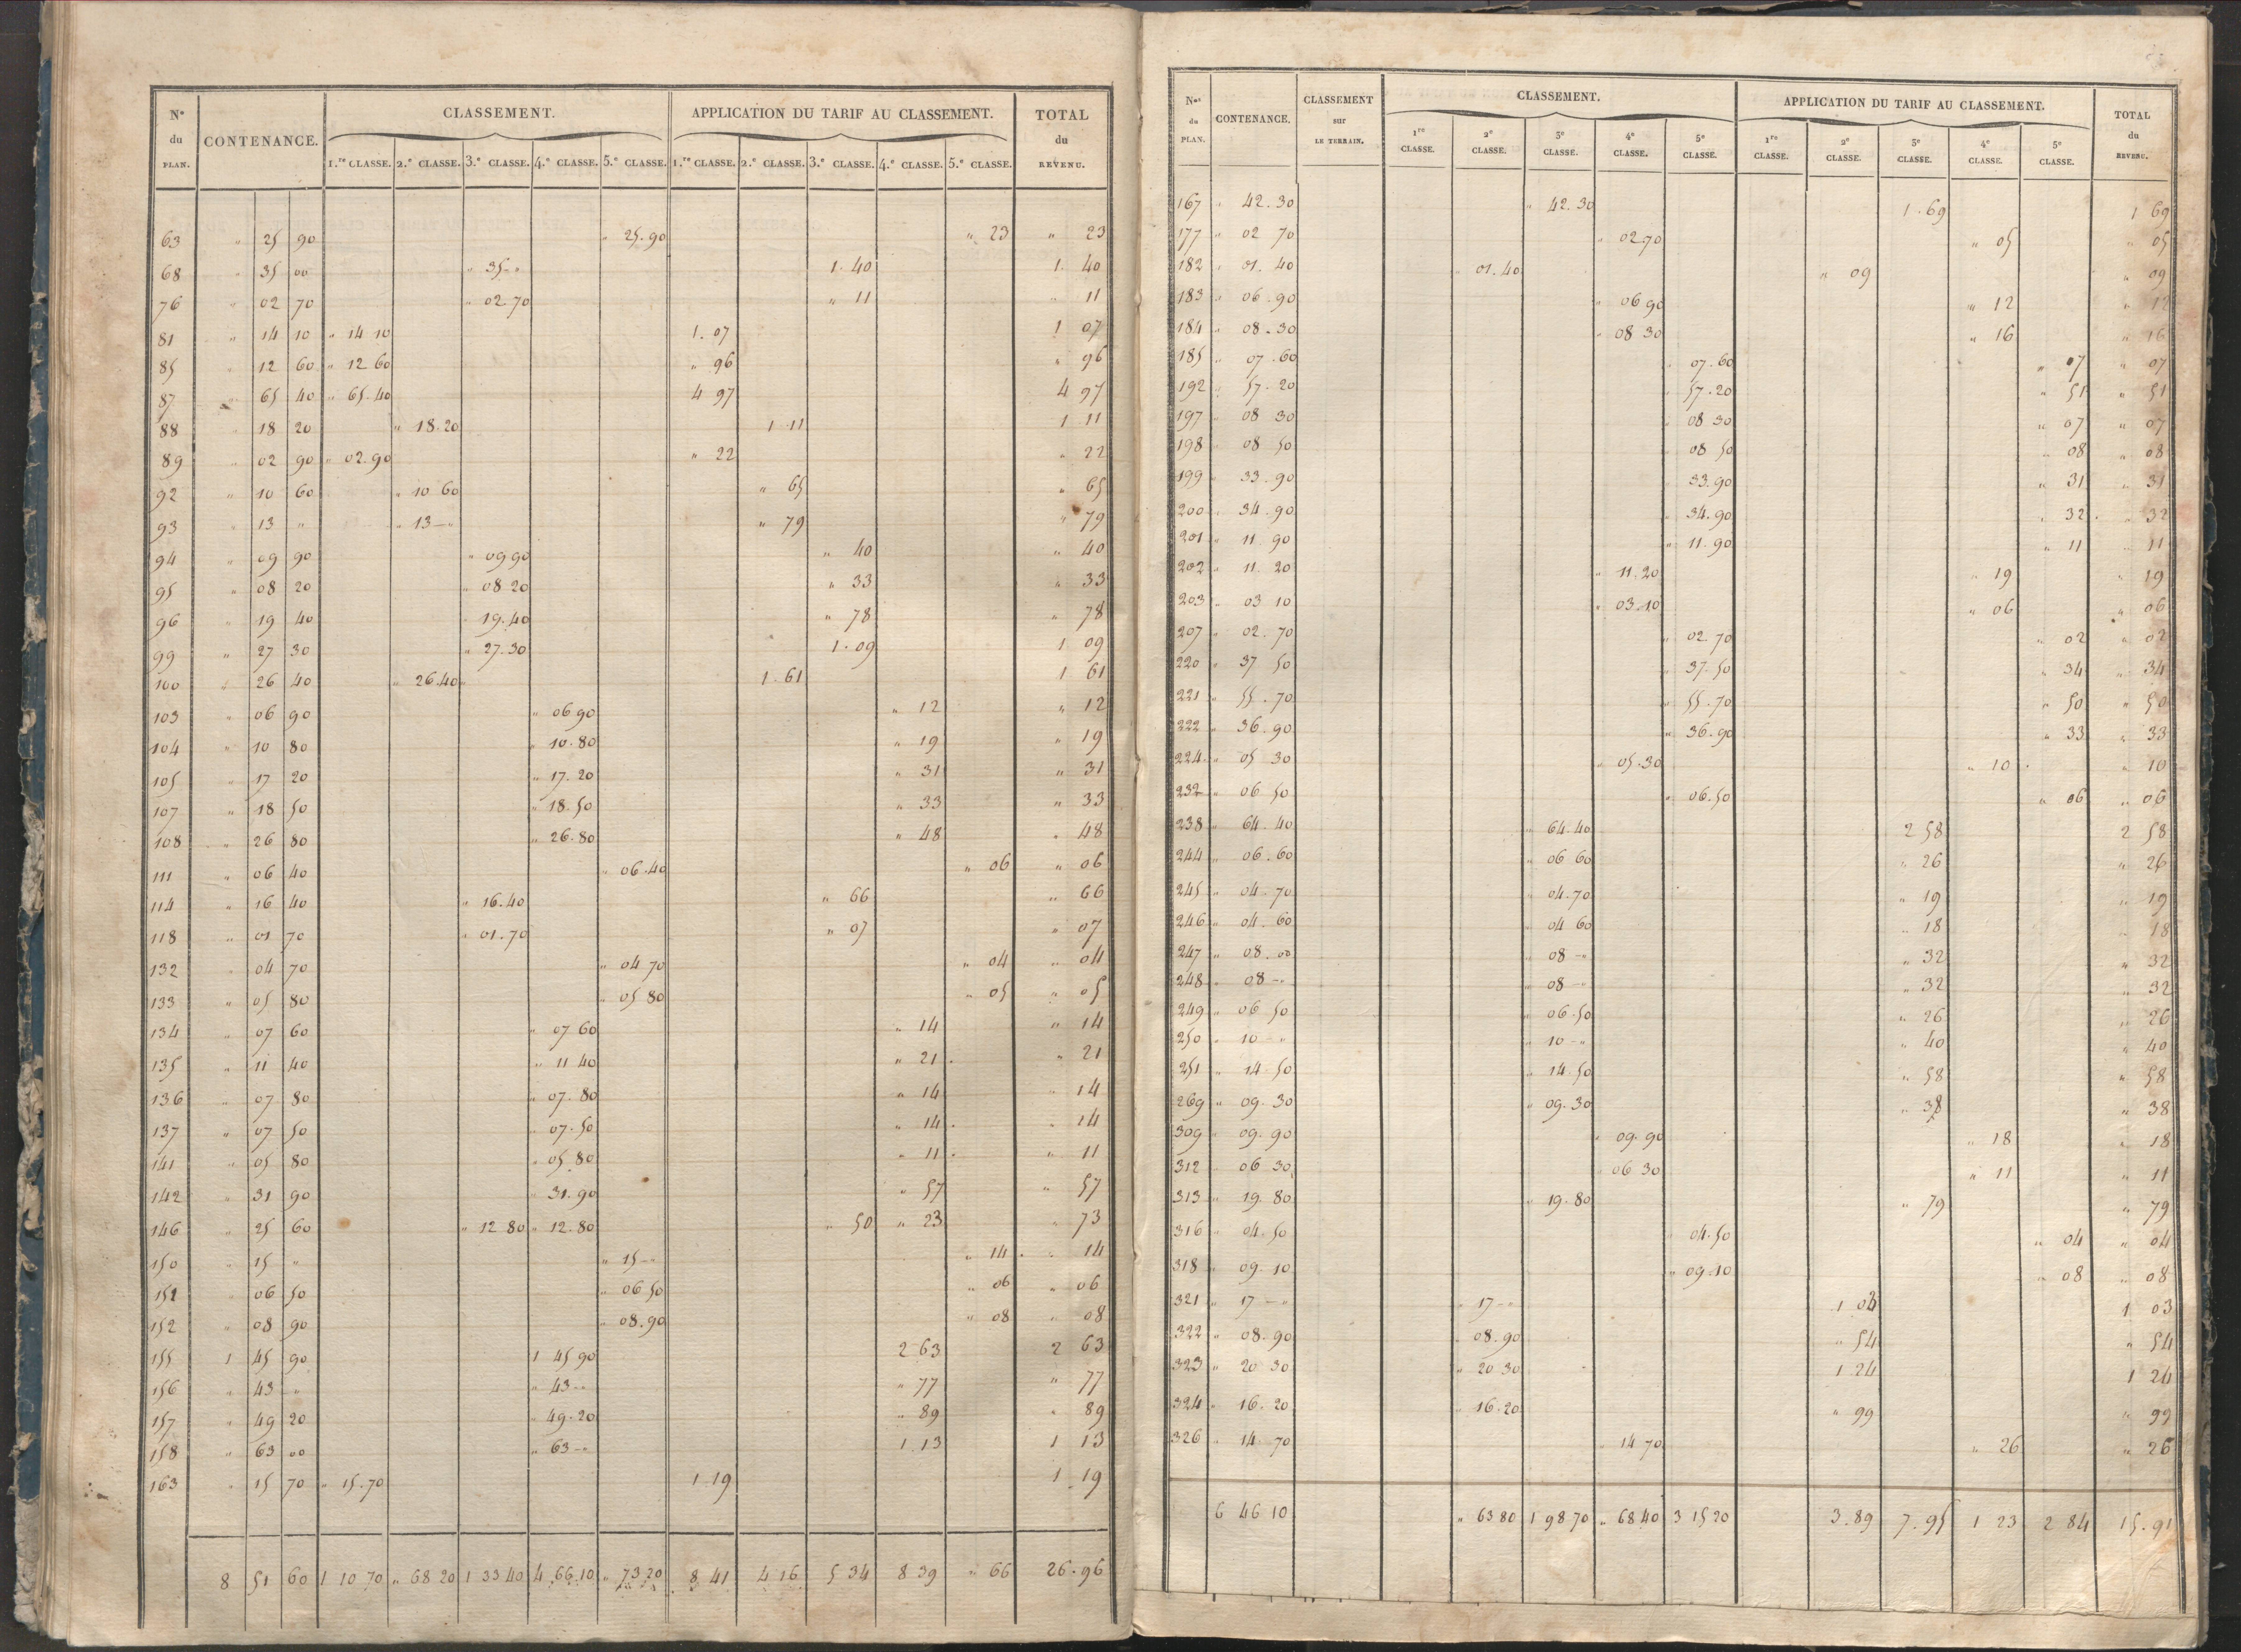 N° du PLAN. CONTENANCE. CLASSEMENT. APPLICATION DU TARIF AU CLASSEMENT. TOTAL du REVENU.
1.re CLASSE. 2.e CLASSE. 3.e CLASSE. 4.e CLASSE. 5.e CLASSE. 1.re CLASSE. 2.e CLASSE. 3.e CLASSE. 4.e CLASSE. 5.e CLASSE.
63 " 25 90 " 25.90 " 23 " 23
68 " 35 00 " 35-" 1.40 1. 40
76 " 02 70 " 02.70 " 11 " 11
81 " 14 10 " 14 10 1.07 1 07
85 " 12 60 " 12 60 " 96 " 96
87 " 65 40 " 65.40 4 97 4 97
88 " 18 20 " 18.20 1.11 1 11
89 " 02 90 " 02.90 " 22 " 22
92 " 10 60 " 10 60 " 65 " 65
93 " 13 " " 13-" " 79 " 79
94 " 09 90 " 09 90 " 40 " 40
95 " 08 20 " 08 20 " 33 " 33
96 " 19 40 " 19.40 " 78 " 78
99 " 27 30 " 27.30 1.09 1 09
100 " 26 40 " 26.40 1.61 1 61
103 " 06 90 " 06 90 " 12 " 12
104 " 10 80 " 10.80 " 19 " 19
105 " 17 20 " 17.20 " 31 " 31
107 " 18 50 " 18.50 " 33 " 33
108 " 26 80 " 26.80 " 48 " 48
111 " 06 40 " 06.40 " 06 " 06
114 " 16 40 " 16.40 " 66 " 66
118 " 01 70 " 01.70 " 07 " 07
132 " 04 70 " 04 70 " 04 " 04
133 " 05 80 " 05 80 " 05 " 05
134 " 07 60 " 07 60 " 14 " 14
135 " 11 40 " 11 40 " 21. " 21
136 " 07 80 " 07.80 " 14 " 14
137 " 07 50 " 07.50 " 14. " 14
141 " 05 80 " 05.80 " 11. " 11
142 " 31 90 " 31.90 " 57 " 57
146 " 25 60 " 12 80 " 12.80 " 50 " 23 " 73
150 " 15 " " 15-" " 14. " 14
151 " 06 50 " 06 50 " 06 " 06
152 " 08 90 " 08.90 " 08 " 08
155 1 45 90 1 45 90 2 63 2 63
156 " 43 -" " 43-" " 77 " 77
157 " 49 20 " 49.20 " 89 " 89
158 " 63 00 " 63-" 1.13 1 13
163 " 15 70 " 15.70 1.19 1.19
8 51 60 1 10 70 " 68 20 1 33 40 4 66.10 " 73 20 8 41 4 16 5 34 8 39 " 66 26.96
Nos du PLAN. CONTENANCE. CLASSEMENT sur LE TERRAIN. CLASSEMENT. APPLICATION DU TARIF AU CLASSEMENT. TOTAL du REVENU.
1re CLASSE. 2e CLASSE. 3e CLASSE. 4e CLASSE. 5e CLASSE. 1re CLASSE. 2e CLASSE. 3e CLASSE. 4e CLASSE. 5e CLASSE.
167 " 42.30 " 42.30 1.69 1 69
177 " 02 70 " 02.70 " 05 " 05
182 " 01.40 " 01.40 " 09 " 09
183 " 06.90 " 06 90 " 12 " 12
184 " 08.30 " 08 30 " 16 " 16
185 " 07.60 " 07.60 " 07 " 07
192 " 57.20 " 57.20 " 51 " 51
197 " 08 30 " 08 30 " 07 " 07
198 " 08 50 " 08 50 " 08 " 08
199 " 33.90 " 33.90 " 31 " 31
200 " 34.90 " 34.90 " 32. " 32
201 " 11 90 " 11.90 " 11 " 11
202 " 11 20 " 11.20 " 19 " 19
203 " 03 10 " 03.10 " 06 " 06
207 " 02.70 " 02.70 " 02 " 02
220 " 37 50 " 37.50 " 34 " 34
221 " 55.70 " 55.70 " 50 " 50
222 " 36.90 " 36.90 " 33 " 33
224 " 05 30 " 05.30 " 10. " 10
232 " 06 50 " 06.50 " 06 " 06
238 " 64.40 " 64.40 2 58 2 58
244 " 06.60 " 06 60 " 26 " 26
245 " 04.70 " 04.70 " 19 " 19
246 " 04.60 " 04 60 " 18 " 18
247 " 08.00 " 08 -" " 32 " 32
248 " 08 -" " 08 -" " 32 " 32
249 " 06 50 " 06.50 " 26 " 26
250 " 10 -" " 10-" " 40 " 40
251 " 14.50 " 14.50 " 58 " 58
269 " 09.30 " 09.30 " 38 " 38
309 " 09.90 " 09.90 " 18 " 18
312 " 06 30 " 06 30 " 11 " 11
313 " 19.80 " 19.80 " 79 " 79
316 " 04.50 " 04.50 " 04 " 04
318 " 09.10 " 09.10 " 08 " 08
321 " 17 -" " 17-" 1 03 1 03
322 " 08.90 " 08.90 " 54 " 54
323 " 20 30 " 20 30 1.24 1 24
324 " 16.20 " 16.20 " 99 " 99
326 " 14.70 " 14 70 " 26 " 26
6 46 10 " 63 80 1 98 70 " 68 40 3 15 20 3.89 7.95 1 23 2 84 15.91